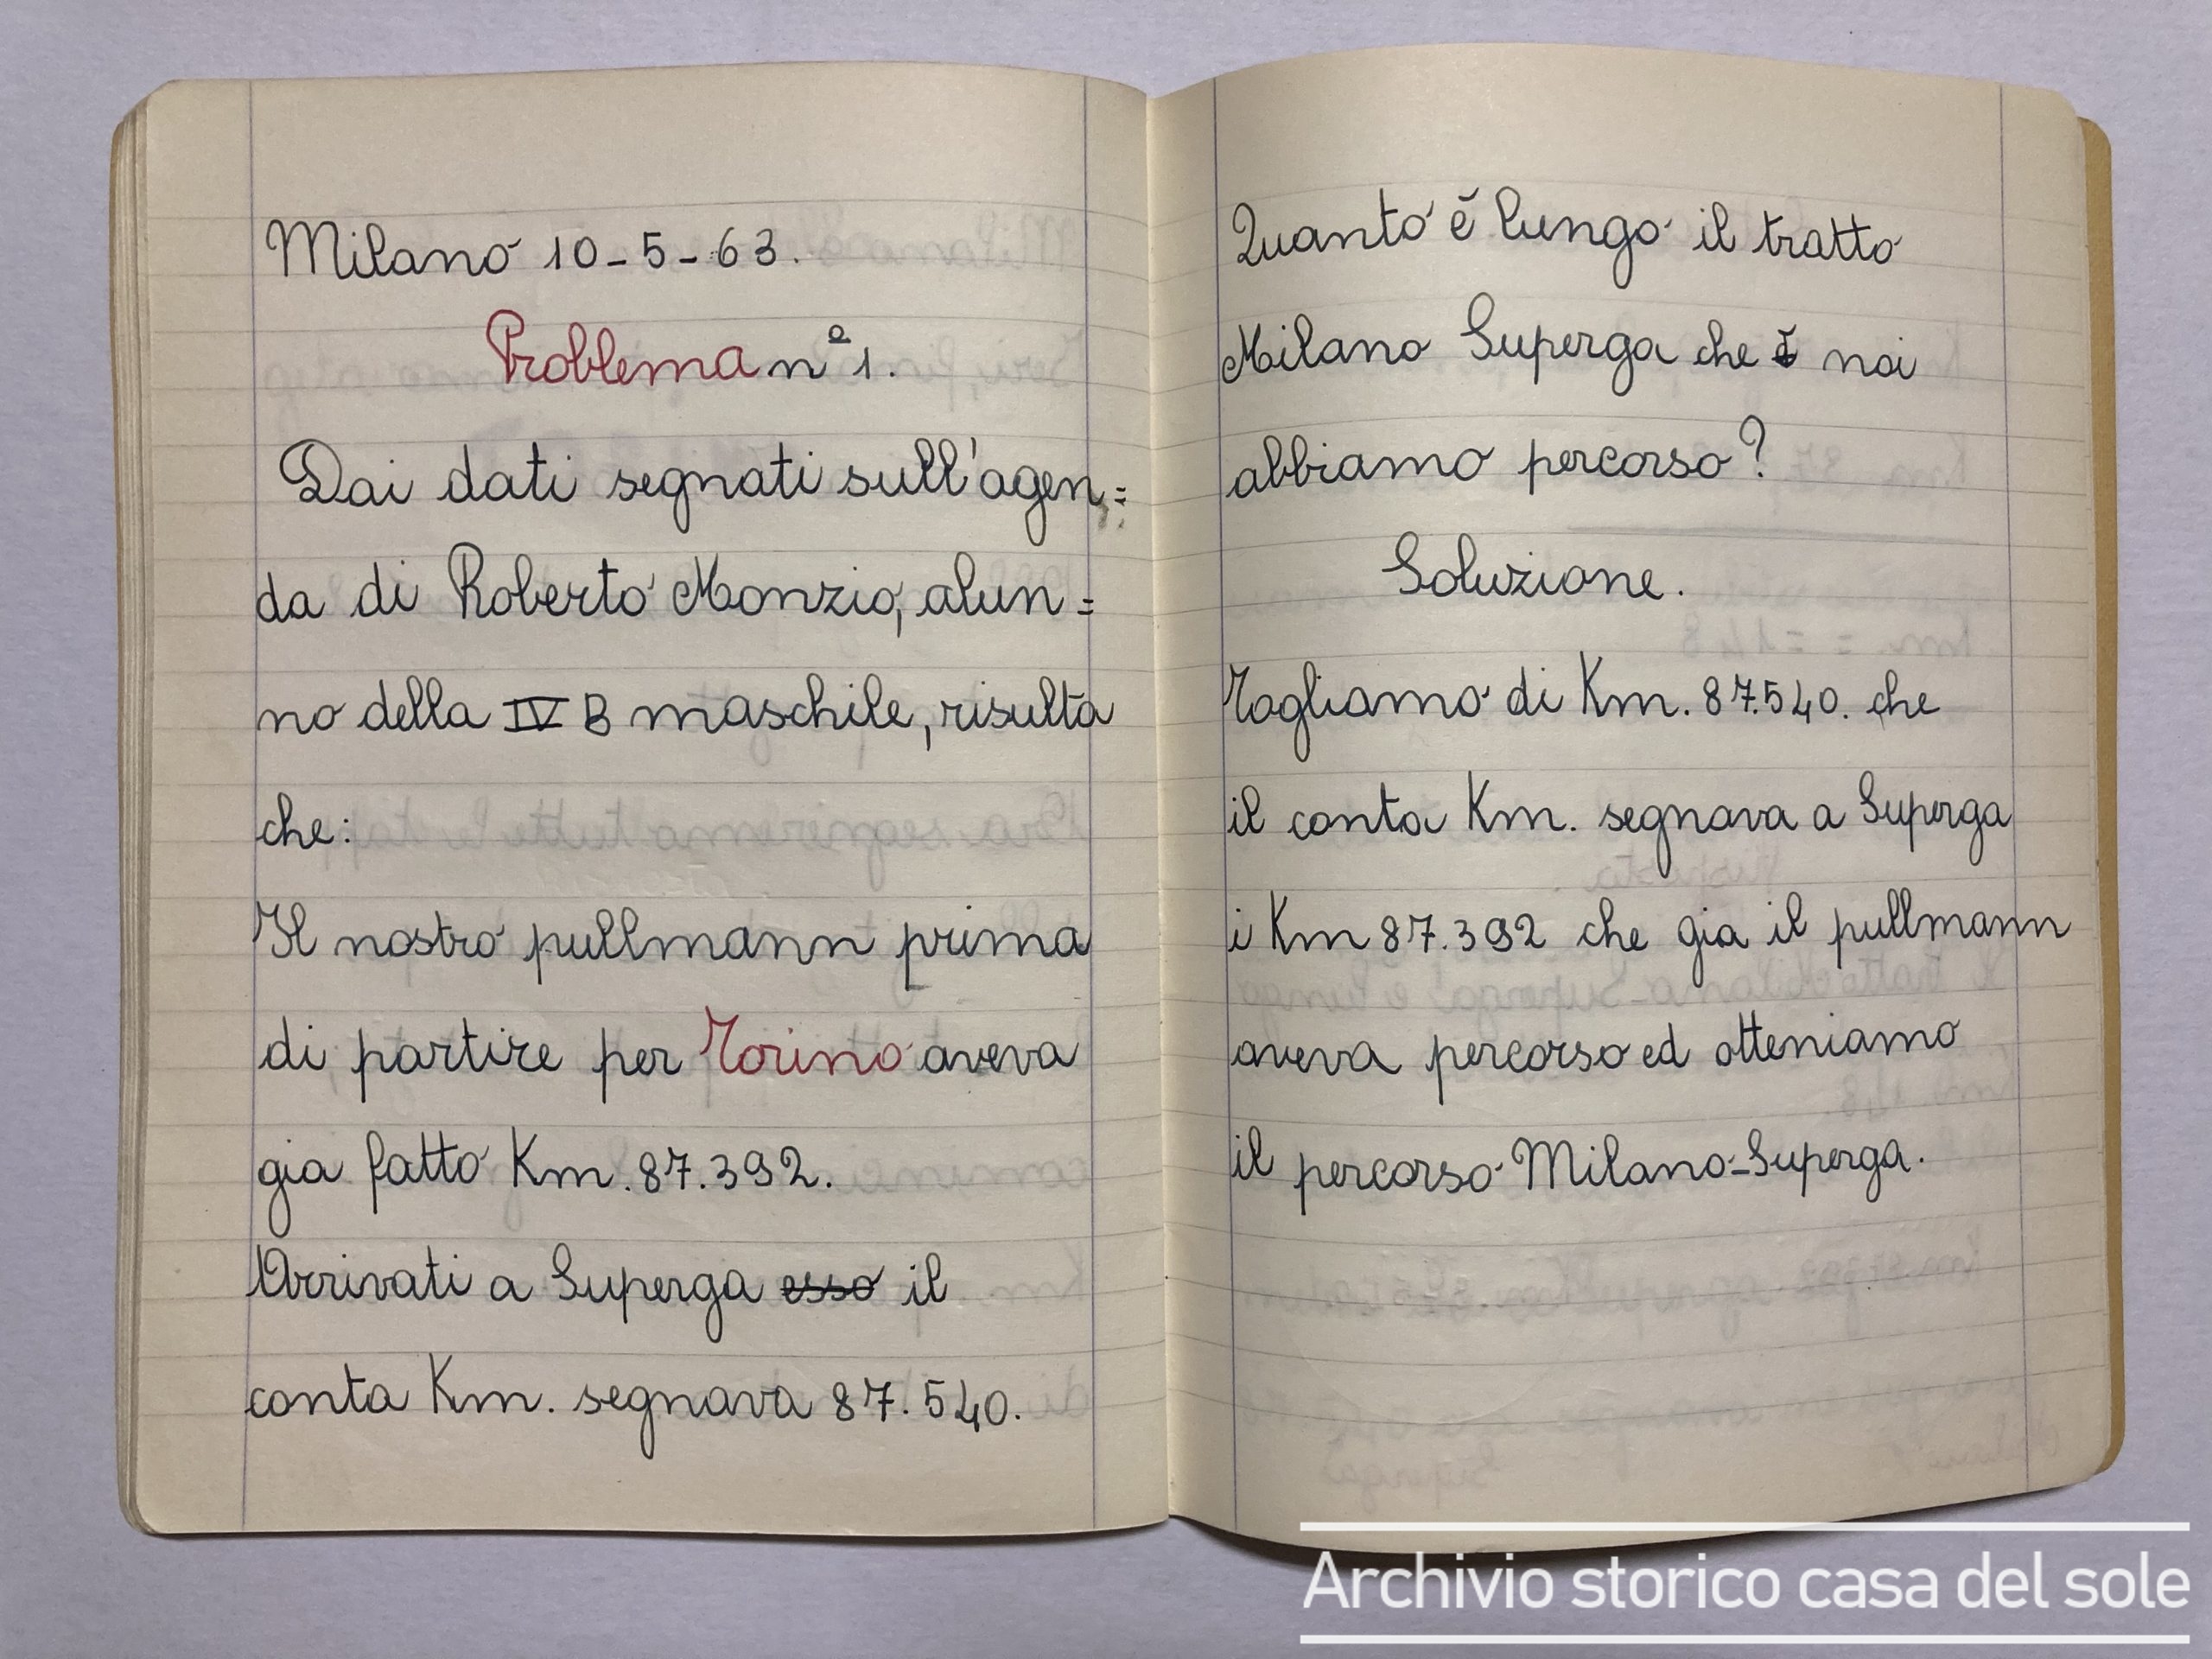 Milano 10-5-63.
Problema n° 1.
Dai dati segnati sull'agen=
da di Roberto Monzio, alun=
no della IV B maschile, risulta
che:
Il nostro pullmann prima
di partire per Torino aveva
gia fatto Km. 87.392.
Arrivati a Superga esso il
conta Km. segnava 87.540.
Quanto è lungo il tratto
Milano Superga che è noi
abbiamo percorso?
Soluzione.
Togliamo di Km. 87.540. che
il conta Km. segnava a Superga
i Km 87.392 che gia il pullmann
aveva percorso ed otteniamo
il percorso Milano-Superga.
Archivio storico casa del sole